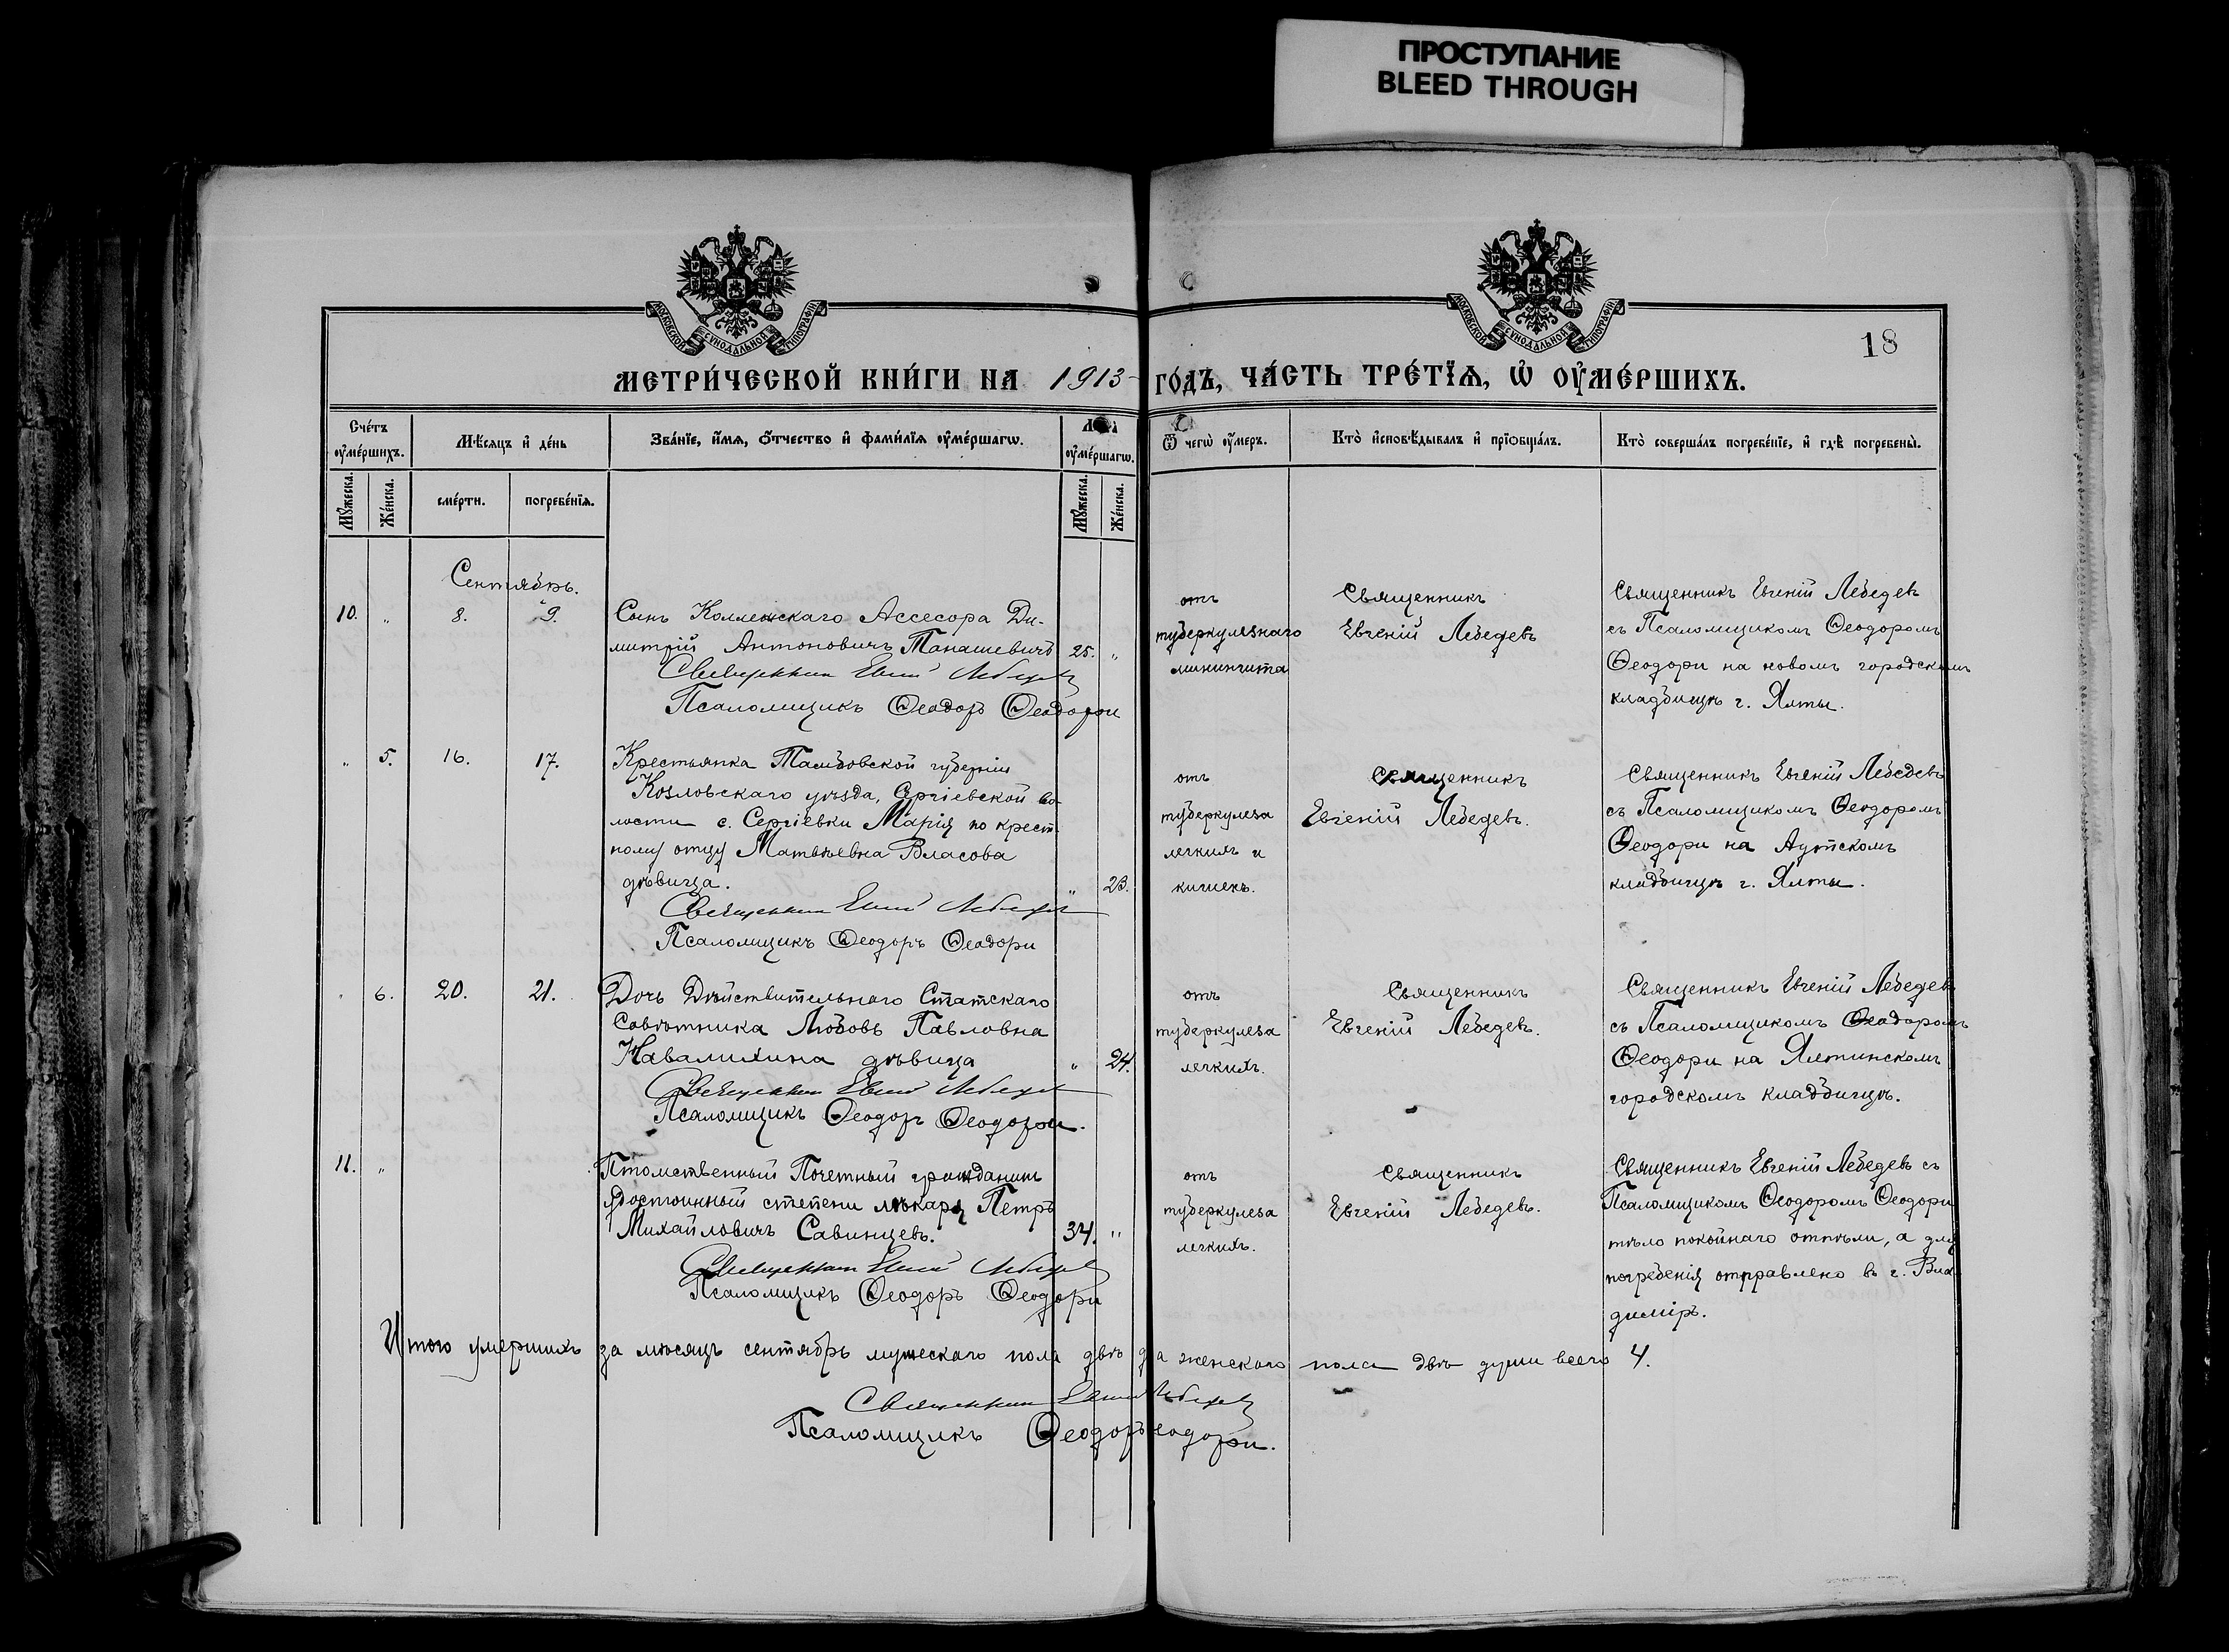 ПРОСТУПАНИЕ
BLEED THROUGH
МОСКОВСКОЙ СѴНОДАЛЬНОЙ ТИПОГРАФІИ
МОСКОВСКОЙ СѴНОДАЛЬНОЙ ТИПОГРАФІИ
18
МЕТРИ́ЧЕСКОЙ КНИ́ГИ НА 1913 ГО́ДЪ, ЧА́СТЬ ТРЕ́ТІѦ, Ѽ ОУ҆МЕ́РШИХЪ.
Сче́тъ оу҆ме́ршихъ.
Мѣ́сяцъ и҆ де́нь
Зва́нїе, и҆́мѧ, ѻ҆́тчество и҆ фами́лїѧ оу҆ме́ршагѡ.
Лѣ́та оу҆ме́ршагѡ.
Ѿ чегѡ̀ оу҆́меръ.
Кто̀ и҆сповѣ́дывалъ и҆ прїѡбща́лъ.
Кто̀ соверша́лъ погребе́нїе, и҆ гдѣ̀ погребены̀.
Мꙋ́жеска.
Же́нска.
сме́рти.
погребе́нїѧ.
Мꙋ́жеска.
Же́нска.
Сентябрь.
10. " 8. 9.
Сынъ Коллежскаго Ассесора Ди-
митрій Антоновичъ Танашевичъ 25. "
Священникъ Евгеній Лебедевъ
Псаломщикъ Ѳеодоръ Ѳеодори
отъ
туберкулезнаго
минингита
Священникъ
Евгеній Лебедевъ
Священникъ Евгеній Лебедевъ
съ Псаломщикомъ Ѳеодоромъ
Ѳеодори на новомъ городскомъ
кладбищѣ г. Ялты.
" 5. 16. 17.
Крестьянка Тамбовской губерніи
Козловскаго уѣзда, Сергіевской во-
лости с. Сергіевки Марія по крест-
ному отцу Матвѣевна Власова
дѣвица. " 23.
Священникъ Евгеній Лебедевъ
Псаломщикъ Ѳеодоръ Ѳеодори
отъ
туберкулеза
легкихъ и
кишекъ.
Священникъ
Евгеній Лебедевъ.
Священникъ Евгеній Лебедевъ
съ Псаломщикомъ Ѳеодоромъ
Ѳеодори на Аутскомъ
кладбищѣ г. Ялты.
" 6. 20. 21.
Дочь Дѣйствительнаго Статскаго
Совѣтника Любовь Павловна
Навалихина дѣвица " 24.
Священникъ Евгеній Лебедевъ
Псаломщикъ Ѳеодоръ Ѳеодори.
отъ
туберкулеза
легкихъ.
Священникъ
Евгеній Лебедевъ.
Священникъ Евгеній Лебедевъ
съ Псаломщикомъ Ѳеодоромъ
Ѳеодори на Ялтинскомъ
городскомъ кладбищѣ.
11. "
Птомственный Почетный гражданинъ
удостоинный степени лѣкаря Петръ
Михайловичъ Савинцевъ. 34. "
Священникъ Евгеній Лебедевъ
Псаломщикъ Ѳеодоръ Ѳеодори
отъ
туберкулеза
легкихъ.
Священникъ
Евгеній Лебедевъ.
Священникъ Евгеній Лебедевъ съ
Псаломщикомъ Ѳеодоромъ Ѳеодори
тѣло покойнаго отпѣли, а для
погребенія отправлено въ г. Вла-
диміръ.
Итого умершихъ за мѣсяцъ сентябрь мужескаго пола двѣ да женскаго пола двѣ души всего 4.
Священникъ Евгеній Лебедевъ
Псаломщикъ Ѳеодоръ Ѳеодори.